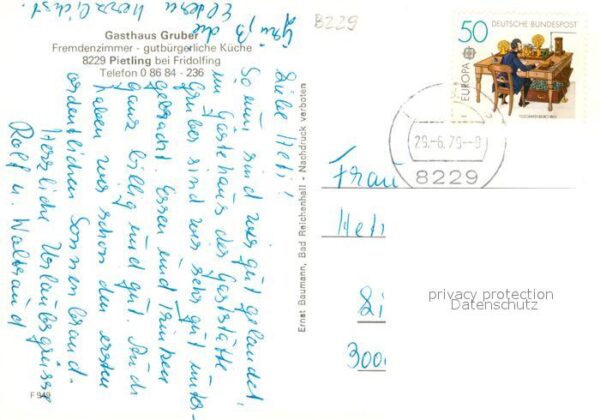 Gasthaus Gruber
Fremdenzimmer - gutbürgerliche Küche
8229 Pietling bei Fridolfing
Telefon 0 86 84 - 236
Liebe Heti!
So nun sind wir gut gelandet
im Gästehaus der Gaststätte
Gruber sind wir sehr gut unter-
gebracht. Essen und trinken
ganz billig und gut. Auch
haben wir schon den ersten
ordentlichen Sonnenbrand.
Herzliche Urlaubsgrüsse
Rolf u. Waltraud
Gruß die
Eltern herzlichst.
F 949
Ernst Baumann, Bad Reichenhall - Nachdruck verboten
8229
50
DEUTSCHE BUNDESPOST
EUROPA
29.-6.79
8229
Frau
Heti
3000
privacy protection
Datenschutz